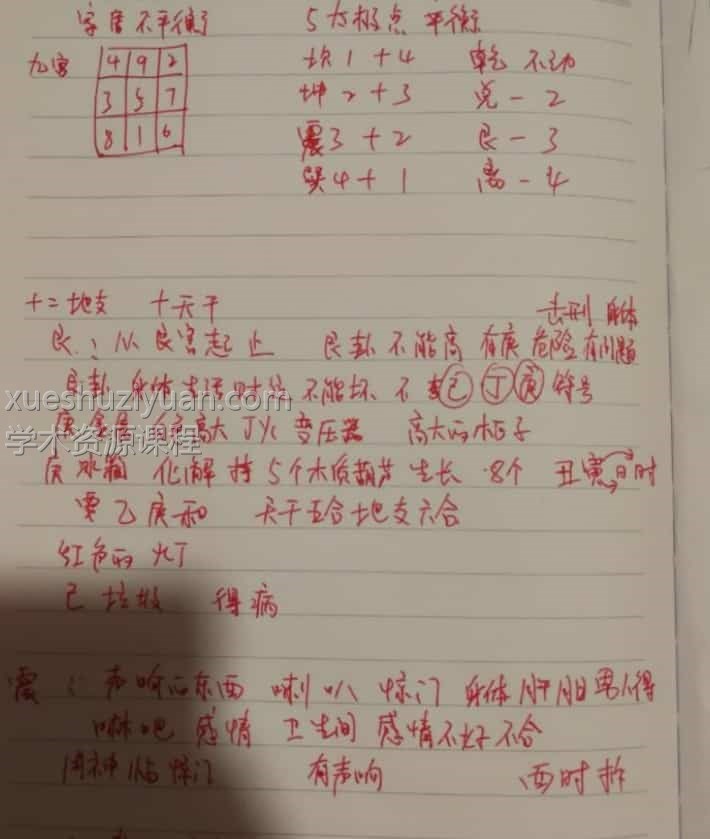 字居不平衡 5为极点 平衡
九宫 4 9 2
3 5 7
8 1 6
坎1+4 乾 不动
坤2+3 兑-2
震3+2 艮-3
巽4+1 离-4
十二地支 十天干 击刑 身体
艮:从艮宫起 止 艮卦不能高 有庚 危险 有问题
艮卦 身体 不能坏 不 己 丁 庚 符号
xueshuziyuan.com
学术资源课程
高大 变压器 高大的柜子
庚 冰箱 化解 挂5个木质葫芦 生长 8个 丑寅日时
要乙庚和 天干五合地支六合
红色的 火丁
己 垃圾 得病
震:声响的东西 喇叭 惊门 身体 肝胆 男人得
感情 卫生间 感情不好不合
用神临惊门 有声响 酉时拆